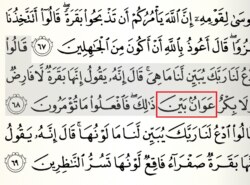 وسىٰ لِقَوْمِهِۦٓ إِنَّ ٱللَّهَ يَأْمُرُكُمْ أَن تَذْبَحُوا۟ بَقَرَةً ۖ قَالُوٓا۟
زُوًا ۖ قَالَ أَعُوذُ بِٱللَّهِ أَنْ أَكُونَ مِنَ ٱلْجَٰهِلِينَ ٦٧ قَالُوا۟
لَنَا رَبَّكَ يُبَيِّن لَّنَا مَا هِىَ ۚ قَالَ إِنَّهُۥ يَقُولُ إِنَّهَا بَقَرَةٌ لَّا فَارِضٌ
بِكْرٌ عَوَانٌۢ بَيْنَ ذَٰلِكَ ۖ فَٱفْعَلُوا۟ مَا تُؤْمَرُونَ ٦٨
وا۟ ٱدْعُ لَنَا رَبَّكَ يُبَيِّن لَّنَا مَا لَوْنُهَا ۚ قَالَ إِنَّهُۥ يَقُولُ
هَا بَقَرَةٌ صَفْرَآءُ فَاقِعٌ لَّوْنُهَا تَسُرُّ ٱلنَّٰظِرِينَ ٦٩